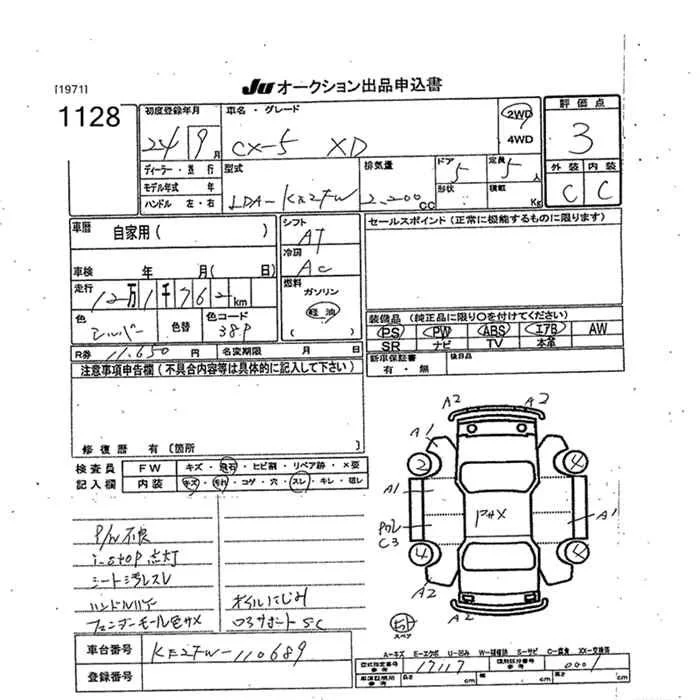 [1971]
JU オークション出品申込書
1128
初度登録年月 車名・グレード 2WD 評価点
24 9月 CX-5 XD 4WD 3
ディーラー・並行 型式 排気量 ドア 定員 外装 内装
モデル年式 年 5 5人
ハンドル 左・右 LDA-KE2FW 2.200CC 形状 積載 Kg C C
車歴 自家用( ) シフト AT セールスポイント(正常に機能するものに限ります)
冷房 AC
車検 年 月( 日)
走行 12万1千762km 燃料 ガソリン 軽油 ( )
色 シルバー 色替 色コード 38P
装備品(純正品に限り○を付けてください)
PS PW ABS エアB AW
SR ナビ TV 本革
R券 11.650円 名変期限 月 日
新車保証書 後日品
有・無
注意事項申告欄(不具合内容等は具体的に記入して下さい)
修復歴 有〔箇所 〕
検査員 FW キズ・飛石・ヒビ割・リペア跡・×要
記入欄 内装 キズ・汚れ・コゲ・穴・スレ・キレ・
P/W不良
i-stop点灯
シート汚レスレ
ハンドル
フェンダーモール色サメ
オイルにじみ
ロアサポートSC
A2 A2
A1
2 4
A1 A1
C3
PHX
4 4
A2
A2 A2
スペア
車台番号 KE2FW-110689
登録番号
A-キズ E-エクボ U-凹み W-補修跡 S-サビ C-腐食 XX-交換済
型式指定番号 参考 17117 類別区分番号 参考 0001
cm cm cm